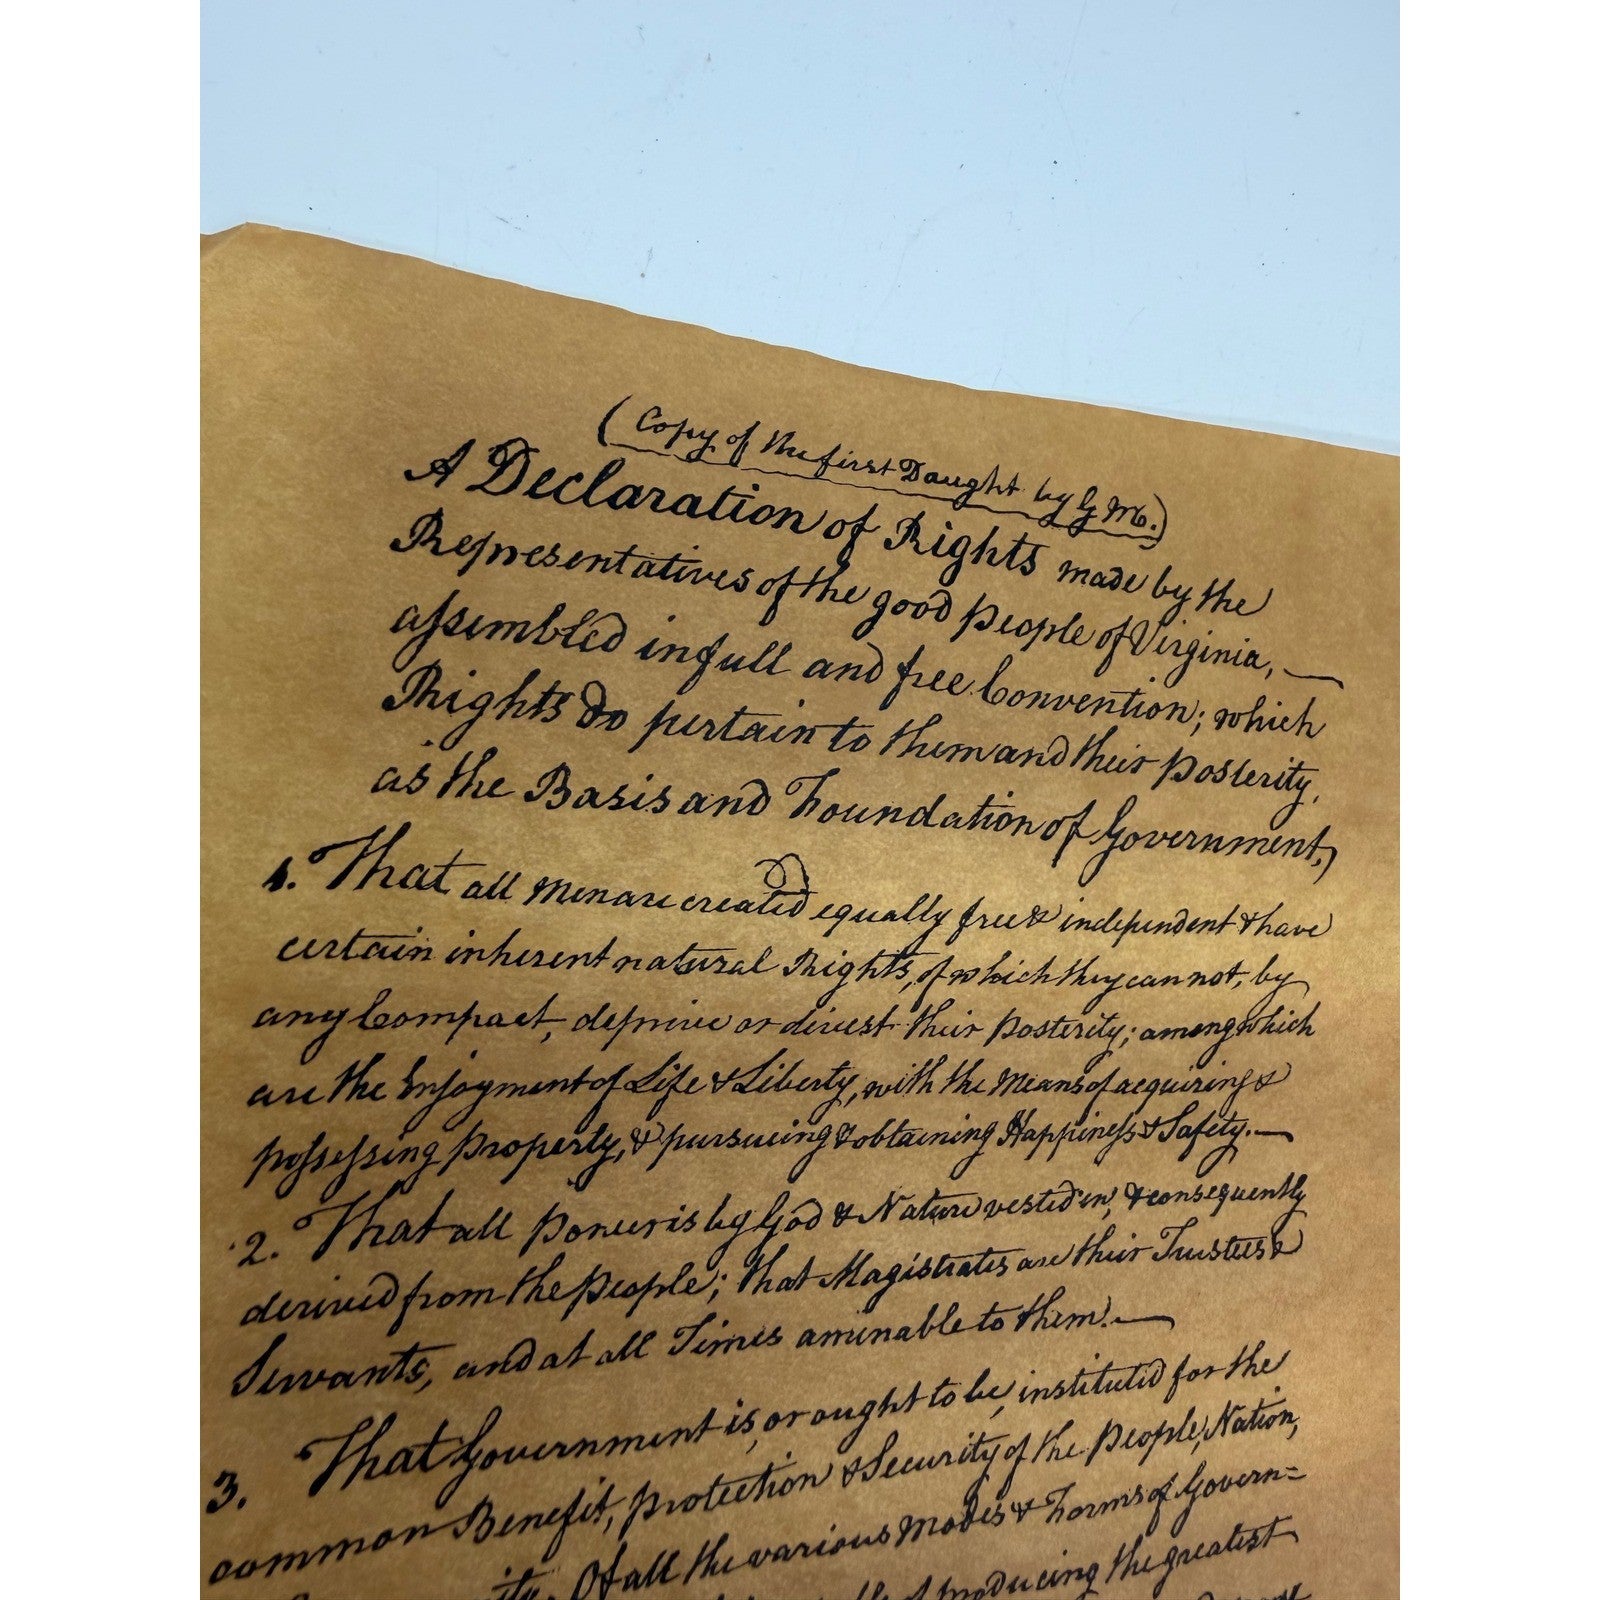 (Copy of the first Daught by G M.)
A Declaration of Rights made by the
Representatives of the good People of Virginia,
assembled in full and free Convention; which
Rights do pertain to them and their Posterity,
as the Basis and Foundation of Government,
1. That all Men are created equally free & independent & have
certain inherent natural Rights, of which they cannot, by
any Compact, deprive or divest their Posterity; among which
are the Enjoyment of Life & Liberty, with the Means of acquiring &
possessing Property, & pursueing & obtaining Happiness & Safety.
2. That all Power is by God & Nature vested in, & consequently
derived from the People; that Magistrates are their Trustees &
Servants, and at all Times aminable to them.
3. That Government is, or ought to be, instituted for the
common Benefit, Protection & Security of the People, Nation,
Of all the various Modes & Forms of Govern=
of producing the greatest